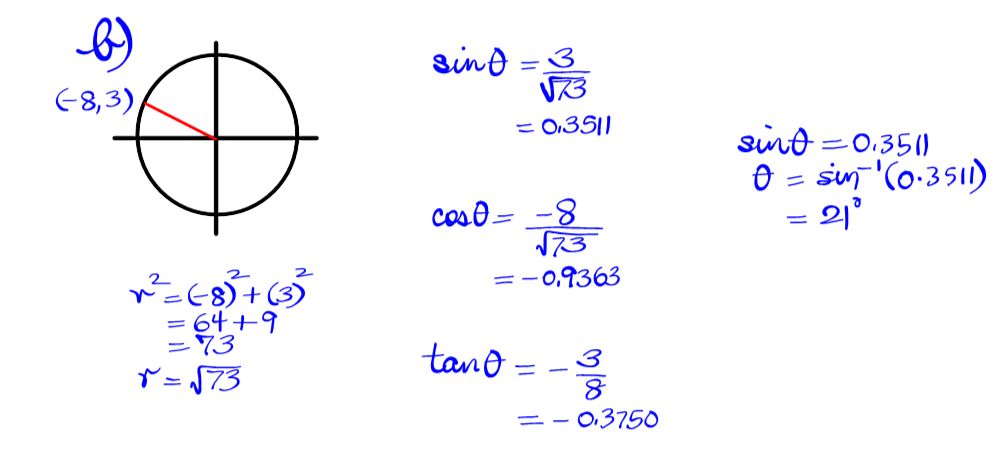 b)
(-8,3)
r² = (-8)² + (3)²
= 64 + 9
= 73
r = √73
sinθ = 3/√73
= 0.3511
cosθ = -8/√73
= -0.9363
tanθ = - 3/8
= - 0.3750
sinθ = 0.3511
θ = sin⁻¹(0.3511)
= 21°